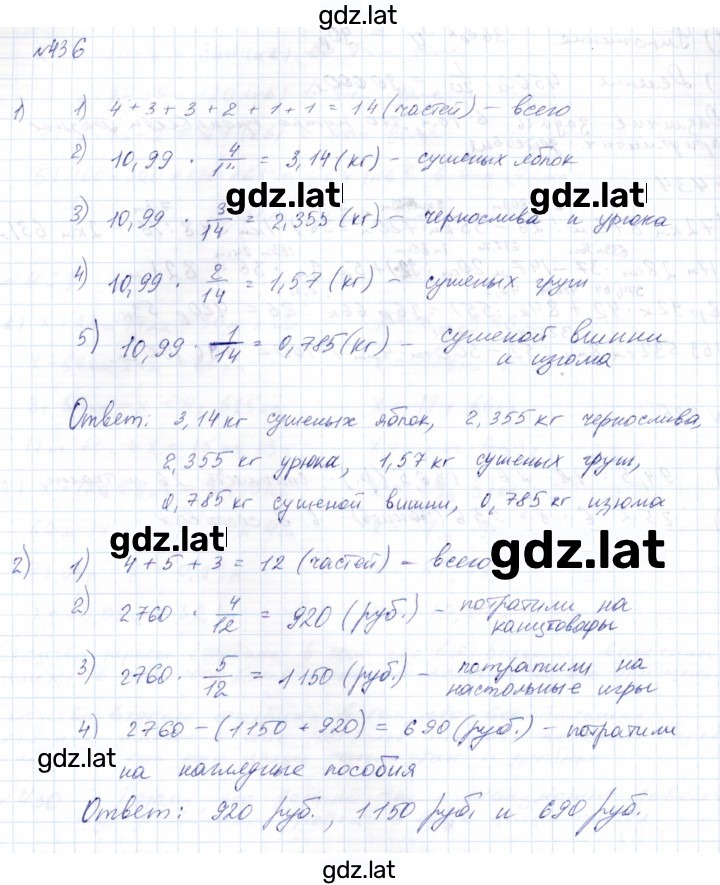 gdz.lat
№436
1) 1) 4+3+3+2+1+1=14 (частей) – всего
2) 10,99 · 4/14 = 3,14 (кг) – сушеных яблок
gdz.lat gdz.lat
3) 10,99 · 3/14 = 2,355 (кг) – чернослива и урюка
4) 10,99 · 2/14 = 1,57 (кг) – сушеных груш
5) 10,99 · 1/14 = 0,785 (кг) – сушеной вишни
и изюма
Ответ: 3,14 кг сушеных яблок, 2,355 кг чернослива,
2,355 кг урюка, 1,57 кг сушеных груш,
0,785 кг сушеной вишни, 0,785 кг изюма
gdz.lat gdz.lat
2) 1) 4+5+3=12 (частей) – всего
2) 2760 · 4/12 = 920 (руб.) – потратили на
канцтовары
3) 2760 · 5/12 = 1150 (руб.) – потратили на
настольные игры
4) 2760-(1150+920)=690 (руб.) – потратили
gdz.lat
на наглядные пособия
Ответ: 920 руб., 1150 руб. и 690 руб.
gdz.lat